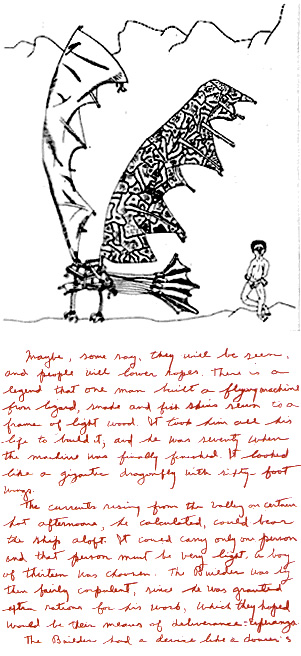 Maybe, some say, they will be seen,
and people will lower ropes. There is a
legend that one man built a flying machine
from lizard, snake and fish skins sewn to a
frame of light wood. It took him all his
life to build it, and he was seventy when
the machine was finally finished. It looked
like a gigantic dragonfly with sixty foot
wings.
The currents rising from the valley on certain
hot afternoons, he calculated, could bear
the ship aloft. It could carry only one person
and that person must be very light, a boy
of thirteen was choosen. The Builder was by
then fairly corpulent, since he was granted
extra rations for his work, which they hoped
would be their means of deliverance
The Builder had a device like a dowser's